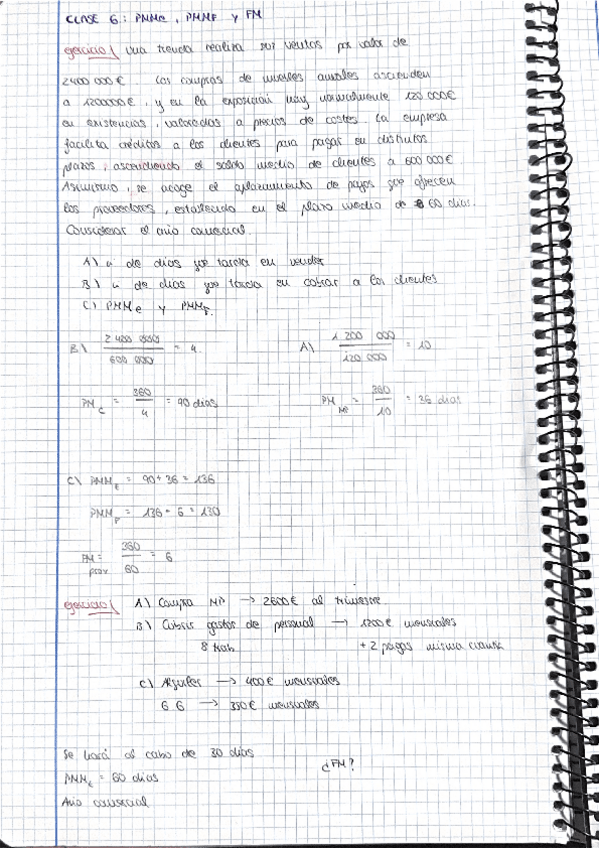 CLASE 6: PMMe, PMMF y FM
ejercicio\ Una tienda realiza sus ventas por valor de
2400 000€. Las compras de muebles anuales ascienden
a 1200000€, y en la exposición hay normalmente 120 000€
en existencias, valoradas a precios de costes. La empresa
facilita créditos a los clientes para pagar en distintos
plazos, ascendiendo el saldo medio de clientes a 600 000€
Asimismo, se acoge el aplazamiento de pagos que ofrecen
los proveedores, establecido en el plazo medio de 60 dias.
Considerar el año comercial.
A) n de dias que tarda en vender
B) n de dias que tarda en cobrar a los clientes
C) PMMe y PMMF.
B) 2 400 000 / 600 000 = 4
A) 1 200 000 / 120 000 = 10
PMc = 360 / 4 = 90 dias
PM MP = 360 / 10 = 36 dias
C) PMME = 90 + 36 = 136
PMMF = 136 - 6 = 130
PM prov = 360 / 60 = 6
ejercicio\ A) Compra MP → 2600€ al trimestre
B) Cubrir gastos de personal → 1200€ mensuales
8 trab + 2 pagas misma cuantia
C) Alquiler → 400€ mensuales
G G → 350€ mensuales
Se hará al cabo de 30 dias
¿FM?
PMMe = 60 dias
Año comercial